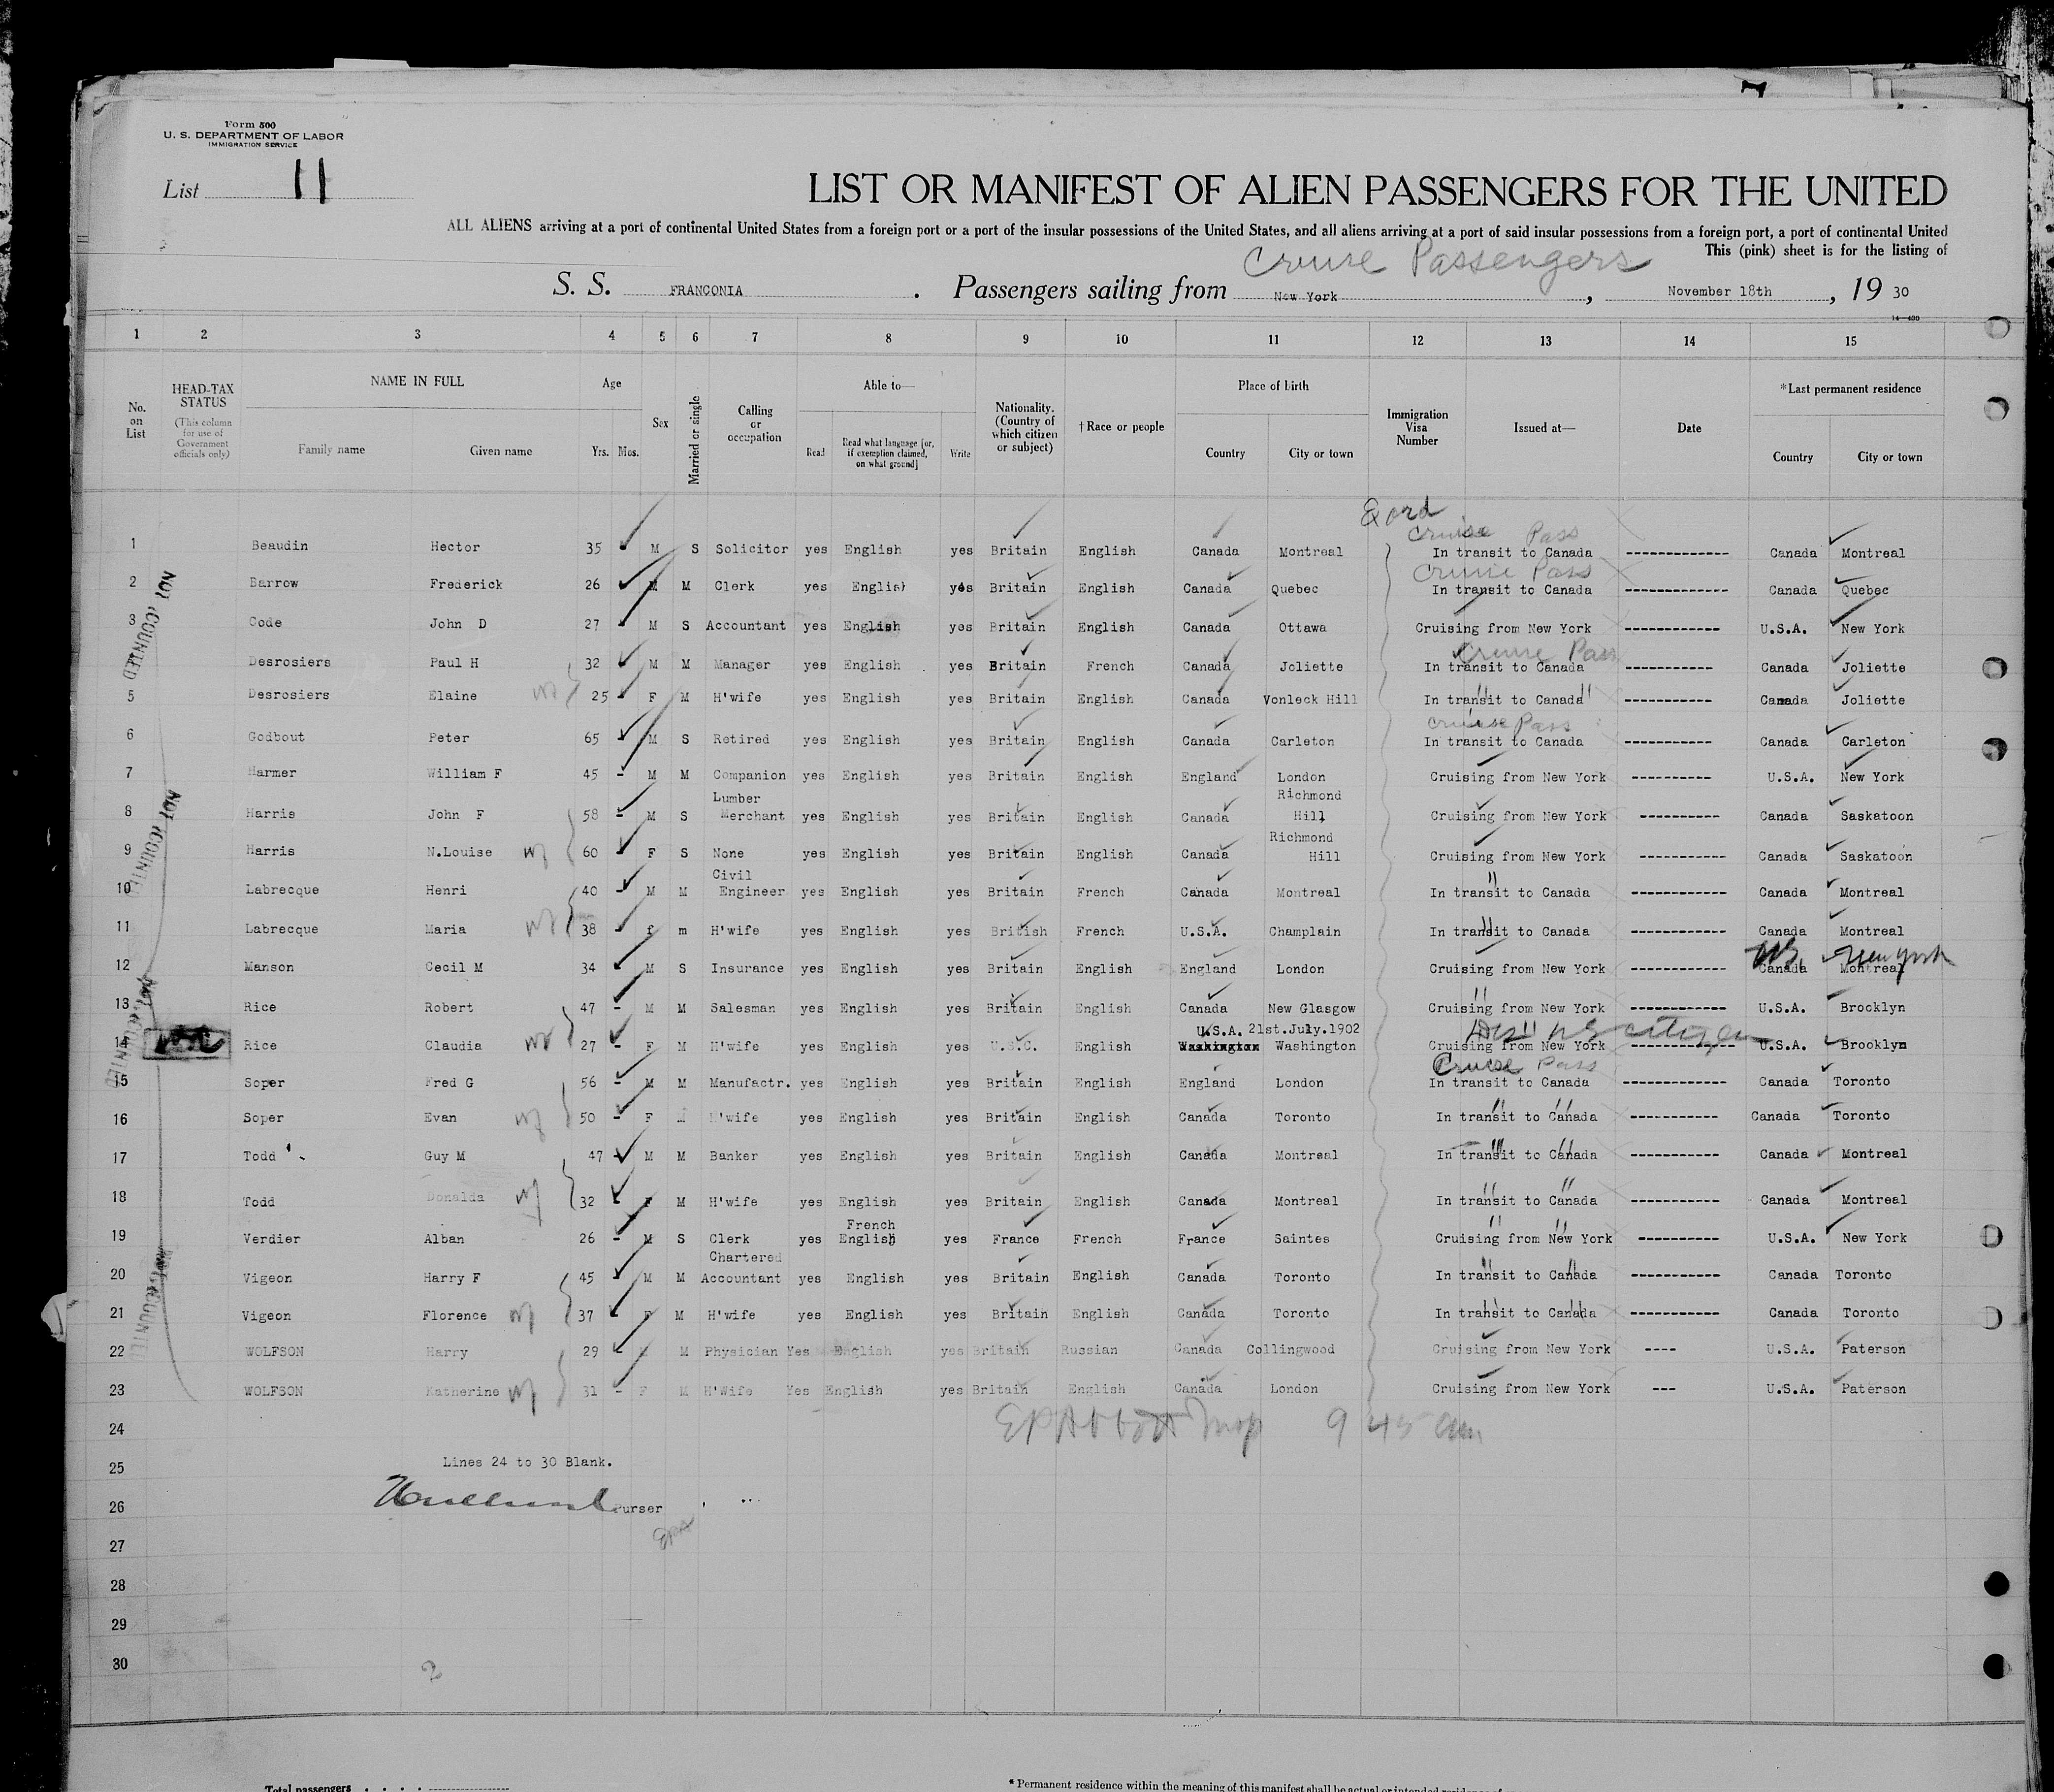 Form 500
U. S. DEPARTMENT OF LABOR
IMMIGRATION SERVICE
List 11
LIST OR MANIFEST OF ALIEN PASSENGERS FOR THE UNITED
ALL ALIENS arriving at a port of continental United States from a foreign port or a port of the insular possessions of the United States, and all aliens arriving at a port of said insular possessions from a foreign port, a port of continental United
This (pink) sheet is for the listing of
Cruise Passengers
S. S. FRANCONIA . Passengers sailing from New York , November 18th , 19 30
14—430
1 2 3 4 5 6 7 8 9 10 11 12 13 14 15
No. on List HEAD-TAX STATUS (This column for use of Government officials only) NAME IN FULL Family name Given name Age Yrs. Mos. Sex Married or single Calling or occupation Able to— Read Read what language [or, if exemption claimed, on what ground] Write Nationality. (Country of which citizen or subject) †Race or people Place of birth Country City or town Immigration Visa Number Issued at— Date *Last permanent residence Country City or town
Cruise Pass
1 Beaudin Hector 35 M S Solicitor yes English yes Britain English Canada Montreal In transit to Canada ------------- Canada Montreal
Cruise Pass
2 Barrow Frederick 26 M M Clerk yes English yes Britain English Canada Quebec In transit to Canada ------------- Canada Quebec
3 Code John D 27 M S Accountant yes English yes Britain English Canada Ottawa Cruising from New York ------------ U.S.A. New York
Cruise Pass
Desrosiers Paul H 32 M M Manager yes English yes Britain French Canada Joliette In transit to Canada ----------- Canada Joliette
5 Desrosiers Elaine 25 F M H'wife yes English yes Britain English Canada Vonleck Hill In transit to Canada ----------- Canada Joliette
Cruise Pass
6 Godbout Peter 65 M S Retired yes English yes Britain English Canada Carleton In transit to Canada ----------- Canada Carleton
7 Harmer William F 45 - M M Companion yes English yes Britain English England London Cruising from New York ----------- U.S.A. New York
8 Harris John F 58 - M S Lumber Merchant yes English yes Britain English Canada Richmond Hill Cruising from New York ---------- Canada Saskatoon
9 Harris N.Louise 60 F S None yes English yes Britain English Canada Richmond Hill Cruising from New York ----------- Canada Saskatoon
10 Labrecque Henri 40 M M Civil Engineer yes English yes Britain French Canada Montreal In transit to Canada ------------- Canada Montreal
11 Labrecque Maria 38 f m H'wife yes English yes British French U.S.A. Champlain In transit to Canada ------------- Canada Montreal
12 Manson Cecil M 34 M S Insurance yes English yes Britain English England London Cruising from New York ------------- Canada Montreal New York
13 Rice Robert 47 - M M Salesman yes English yes Britain English Canada New Glasgow Cruising from New York ------------- U.S.A. Brooklyn
U.S.A. 21st.July.1902
14 Rice Claudia 27 - F M H'wife yes English yes U.S.C. English Washington Washington Cruising from New York US citizen U.S.A. Brooklyn
Cruise Pass
15 Soper Fred G 56 - M M Manufactr. yes English yes Britain English England London In transit to Canada ------------ Canada Toronto
16 Soper Evan 50 - F H'wife yes English yes Britain English Canada Toronto In transit to Canada ----------- Canada Toronto
17 Todd Guy M 47 M M Banker yes English yes Britain English Canada Montreal In transit to Canada ----------- Canada Montreal
18 Todd Donalda 32 F M H'wife yes English yes Britain English Canada Montreal In transit to Canada ----------- Canada Montreal
19 Verdier Alban 26 - M S Clerk yes French English yes France French France Saintes Cruising from New York ---------- U.S.A. New York
20 Vigeon Harry F 45 M M Chartered Accountant yes English yes Britain English Canada Toronto In transit to Canada ----------- Canada Toronto
21 Vigeon Florence 37 F M H'wife yes English yes Britain English Canada Toronto In transit to Canada ----------- Canada Toronto
22 WOLFSON Harry 29 M Physician Yes English yes Britain Russian Canada Collingwood Cruising from New York ---- U.S.A. Paterson
23 WOLFSON Katherine 31 - F M H'Wife Yes English yes Britain English Canada London Cruising from New York --- U.S.A. Paterson
24 9 45 am
25 Lines 24 to 30 Blank.
26 Purser
27
28
29
30
2
NOT COUNTED
NOT COUNTED
NOT COUNTED
NOT COUNTED
Total passengers . . . .
* Permanent residence within the meaning of this manifest shall be actual or intended residence of